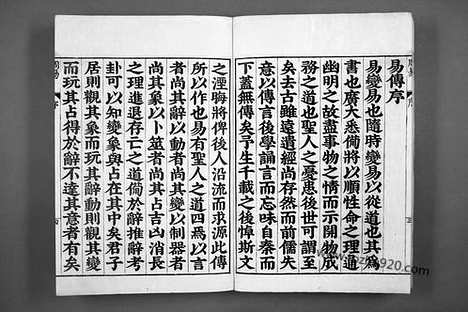 易傳序
易變易也隨時變易以從道也其爲
書也廣大悉備將以順性命之理通
幽明之故盡事物之情而示開物成
務之道也聖人之憂患後世可謂至
矣去古雖遠遺經尚存然而前儒失
意以傳言後學誦言而忘味自秦而
下蓋無傳矣予生千載之後悼斯文
之湮晦將俾後人沿流而求源此傳
所以作也易有聖人之道四焉以言
者尚其辭以動者尚其變以制器者
尚其象以卜筮者尚其占吉凶消長
之理進退存亡之道備於辭推辭考
卦可以知變象與占在其中矣君子
居則觀其象而玩其辭動則觀其變
而玩其占得於辭不達其意者有矣